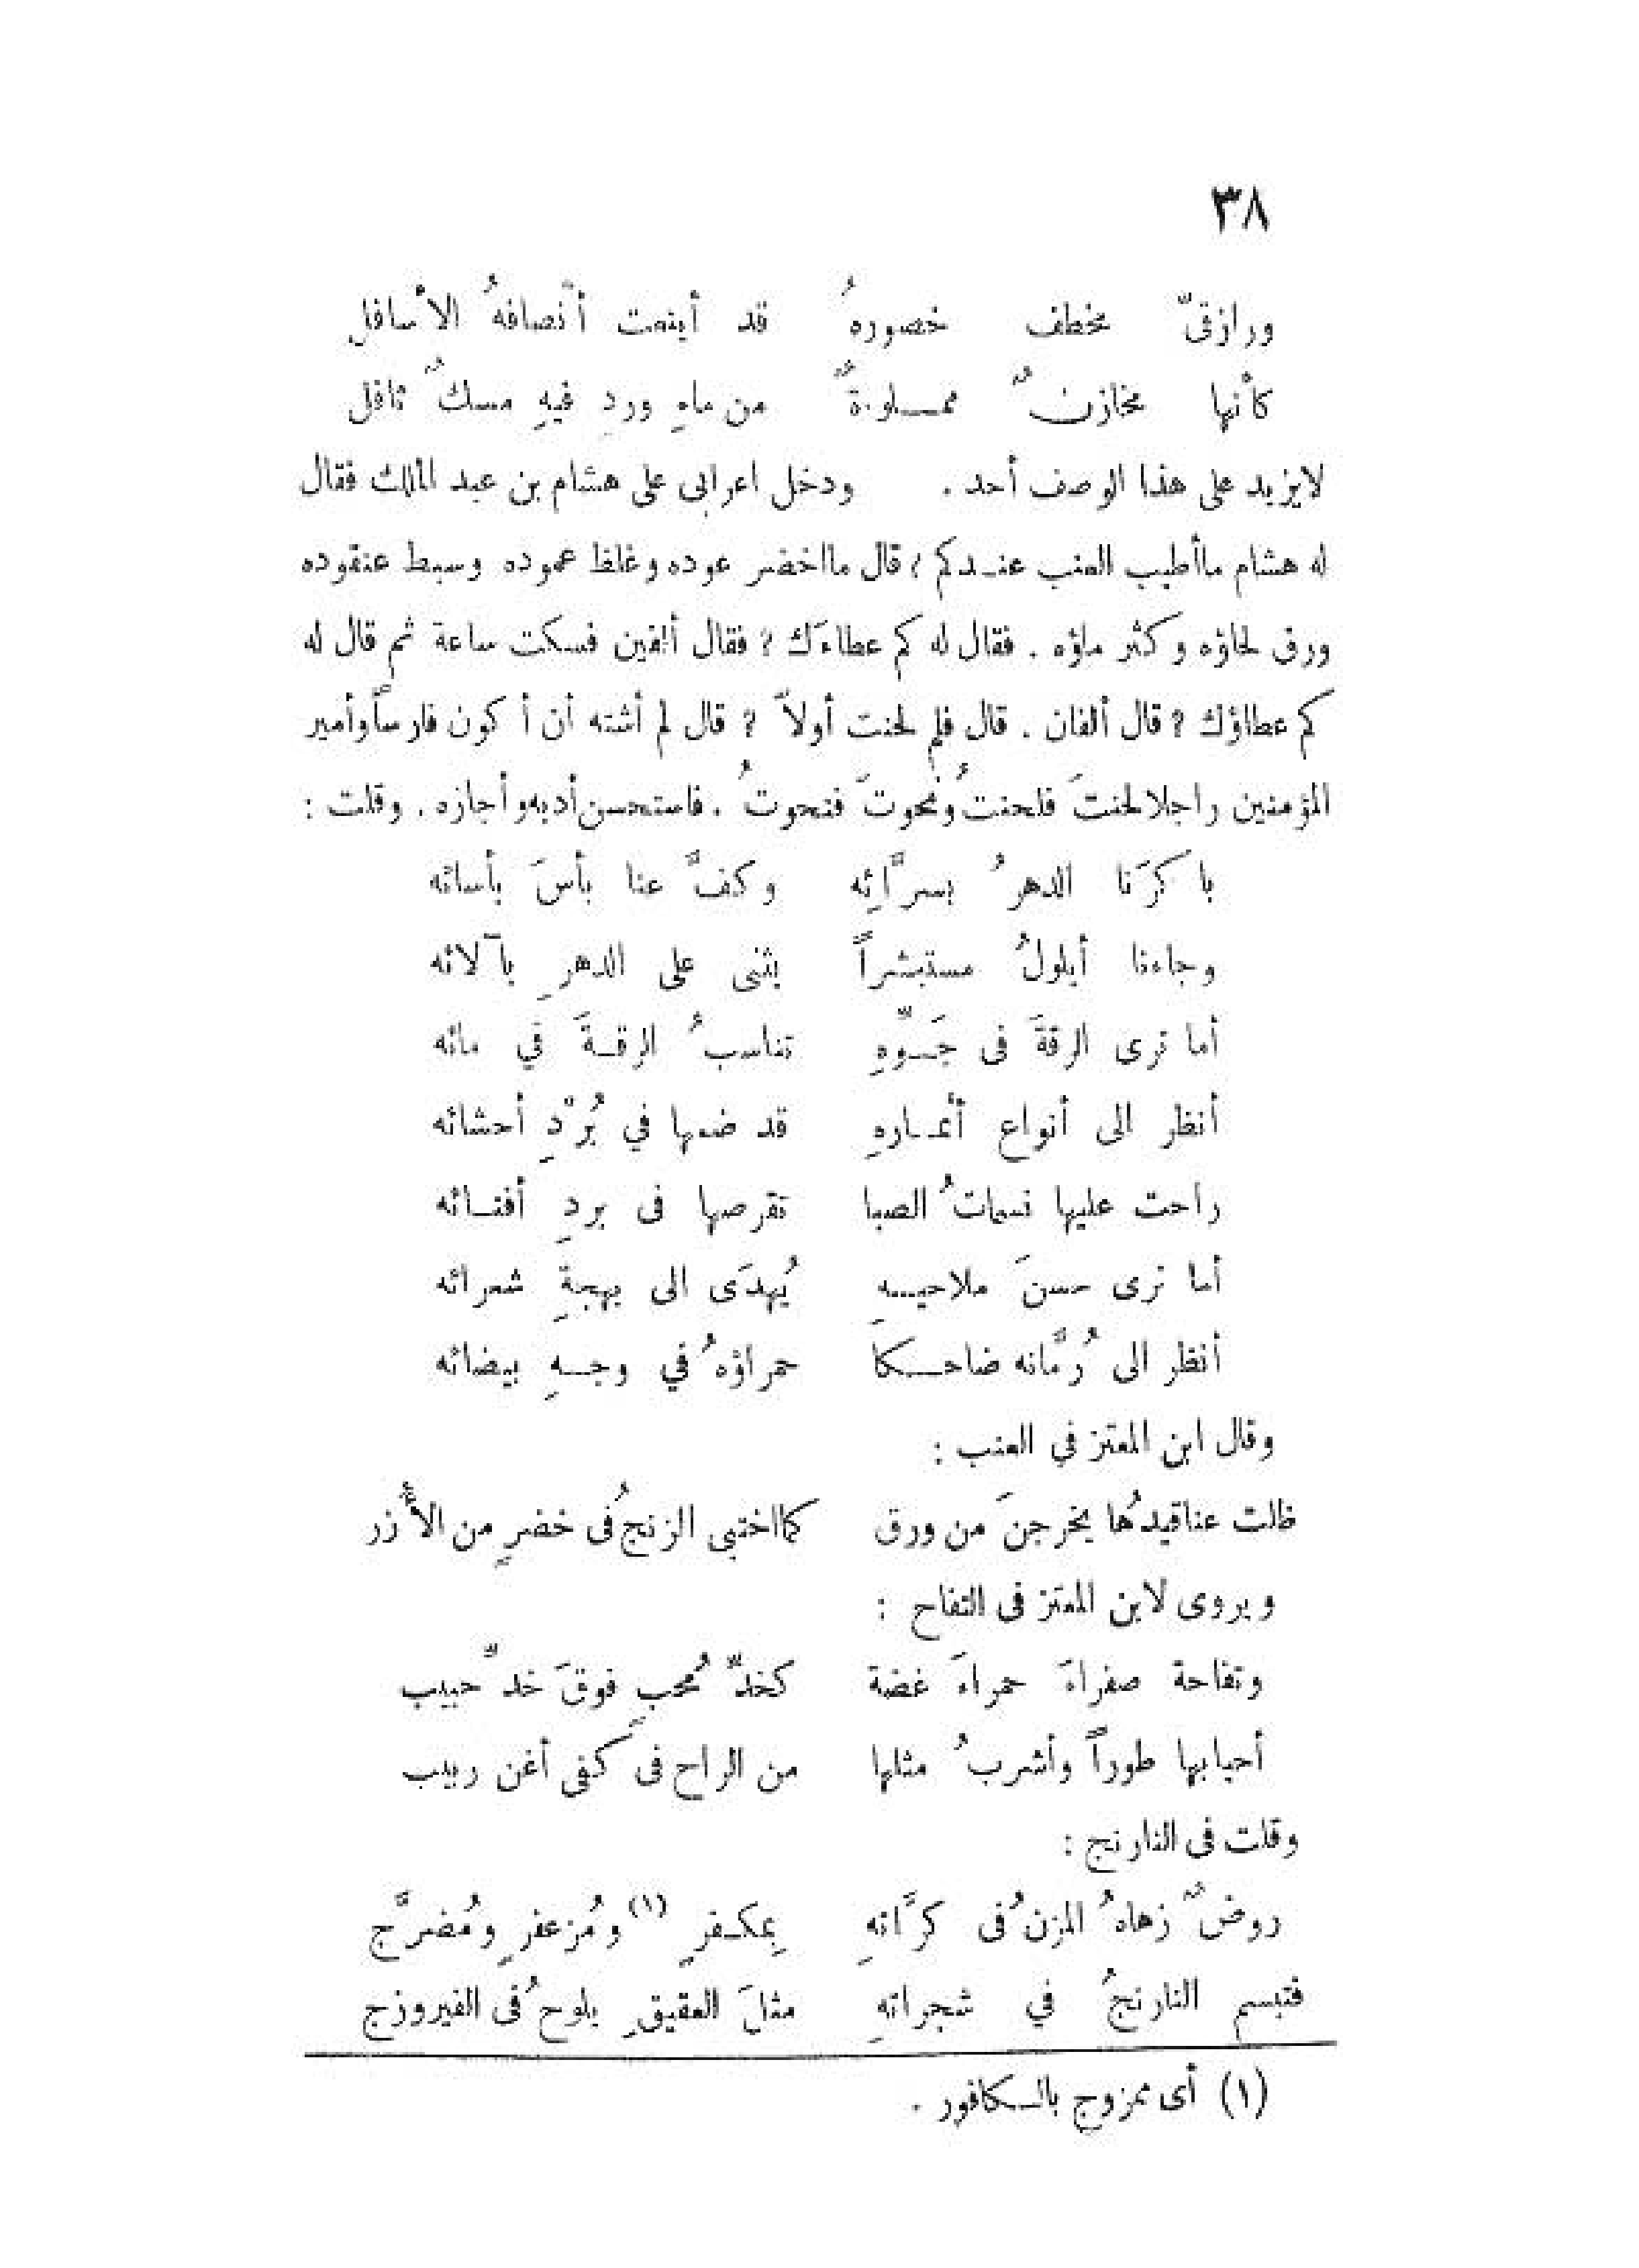 ٣٨
ورازقىّ مخطف خصورهُ قد أينعت أنصافهُ الأسافل
كأنها مخازنٌ مملوءةٌ من ماءِ وردِ فيهِ مسكٌ ثافل
لايزيد على هذا الوصف أحد . ودخل اعرابى على هشام بن عبد الملك فقال
له هشام ماأطيب العنب عندكم ؟ قال مااخضر عوده وغلظ عموده وسبط عنقوده
ورق لحاؤه وكثر ماؤه . فقال له كم عطاءَك ؟ فقال ألفين فسكت ساعة ثم قال له
كم عطاؤك ؟ قال ألفان . قال فلم لحنت أولاً ؟ قال لم أشته أن أكون فارساً وأمير
المؤمنين راجلا لحنتَ فلحنتُ ونحوتَ فنحوتُ . فاستحسن أدبه وأجازه . وقلت :
باكرَنا الدهرُ بسرَّائِه وكفَّ عنا بأسَ بأسائه
وجاءنا أيلولُ مستبشراً يثنى على الدهرِ بآلائه
أما ترى الرقةَ فى جَوّهِ تناسبُ الرقةَ في مائه
أنظر الى أنواع أثمارهِ قد ضمها في بُرْدِ أحشائه
راحت عليها نسماتُ الصبا تقرصها فى بردِ أفنائه
أما ترى حسنَ ملاحيهِ يُهدَى الى بهجةِ شعرائه
أنظر الى رُمَّانه ضاحكا حمراؤهُ في وجهِ بيضائه
وقال ابن المعتز في العنب :
ظلت عناقيدُها يخرجنَ من ورق كمااختبى الزنجُ فى خضرٍ من الأُزر
ويروى لابن المعتز فى التفاح :
وتفاحة صفراءَ حمراءَ غضة كخدّ مُحبٍ فوقَ خدّ حبيب
أحيابها طوراً وأشربُ مثلها من الراح فى كفى أغن ربيب
وقلت فى النارنج :
روضٌ زهاهُ المزنُ فى كرَّاتهِ بمِكفرٍ (١) ومُزعفرٍ ومُضرَّج
فتبسم النارنجُ في شجراتهِ مثلَ العقيقِ يلوحُ فى الفيروزج
(١) أى ممزوج بالكافور .